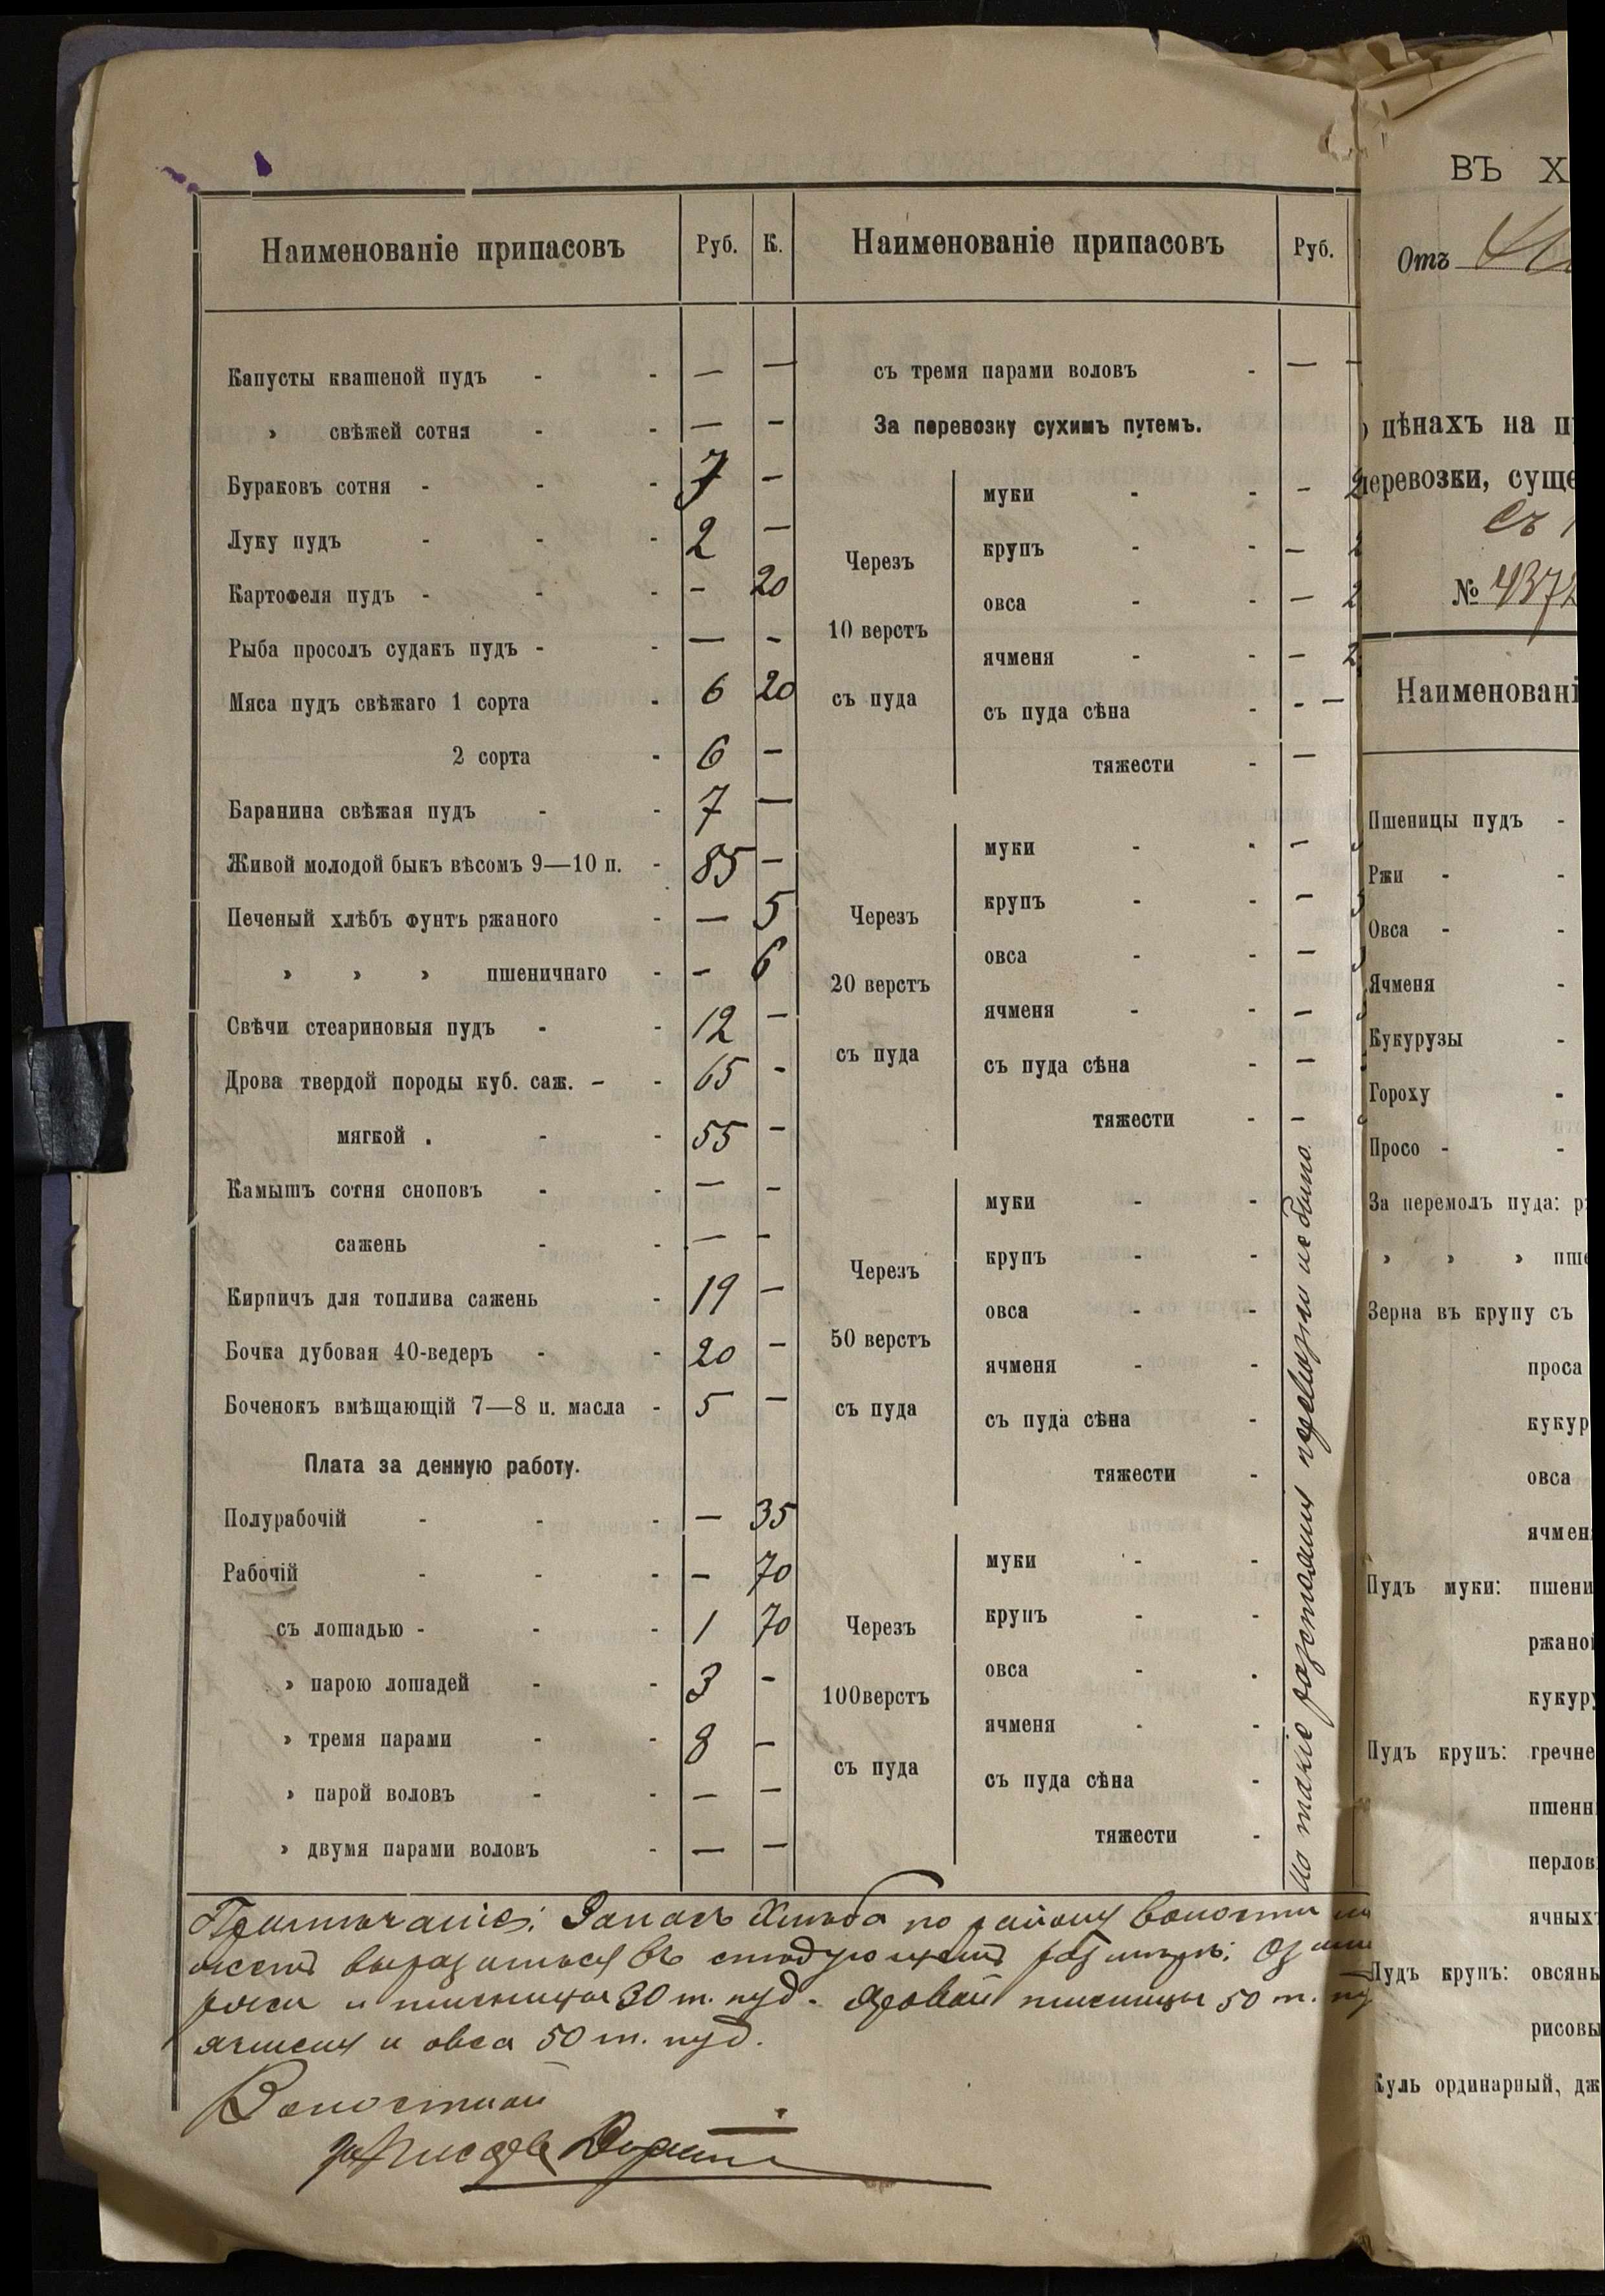 Наименованіе припасовъ Руб. К.
Капусты квашеной пудъ - - — —
» свѣжей сотня - - — —
Бураковъ сотня - - - 7 —
Луку пудъ - - - 2 —
Картофеля пудъ - - - — 20
Рыба просолъ судакъ пудъ - - — —
Мяса пудъ свѣжаго 1 сорта - 6 20
2 сорта - 6 —
Баранина свѣжая пудъ - - 7 —
Живой молодой быкъ вѣсомъ 9—10 п. - 85 —
Печеный хлѣбъ фунтъ ржаного - — 5
» » » пшеничнаго - — 6
Свѣчи стеариновыя пудъ - - 12 —
Дрова твердой породы куб. саж. - - 65 —
мягкой . - - 55 —
Камышъ сотня сноповъ - - — —
сажень - - — —
Кирпичъ для топлива сажень - 19 —
Бочка дубовая 40-ведеръ - - 20 —
Боченокъ вмѣщающій 7—8 п. масла - 5 —
Плата за денную работу.
Полурабочій - - - — 35
Рабочій - - - — 70
съ лошадью - - - 1 70
» парою лошадей - - 3 —
» тремя парами - - 8 —
» парой воловъ - - — —
» двумя парами воловъ - — —
Наименованіе припасовъ Руб.
съ тремя парами воловъ - — —
За перевозку сухимъ путемъ.
Черезъ
10 верстъ
съ пуда
муки - - — 2
крупъ - - — 2
овса - - — 2
ячменя - - — 2
съ пуда сѣна - - —
тяжести - —
Черезъ
20 верстъ
съ пуда
муки - - —
крупъ - - —
овса - - —
ячменя - - —
съ пуда сѣна - —
тяжести - —
Черезъ
50 верстъ
съ пуда
муки - -
крупъ - -
овса - -
ячменя - -
съ пуда сѣна -
тяжести -
Черезъ
100верстъ
съ пуда
муки - -
крупъ - -
овса - -
ячменя - -
съ пуда сѣна -
тяжести -
На такіе разстоянія перевозки не было
Примѣчаніе: Запасъ хлѣба по району волости
можетъ выразиться въ слѣдующемъ размѣрѣ:
ржи и пшеницы 30 т. пуд. яровой пшеницы 50 т.
ячменя и овса 50 т. пуд.
Волостной
ВЪ Х
Отъ
цѣнахъ на п
перевозки, суще
съ 1
№ 4372
Наименовані
Пшеницы пудъ -
Ржи - -
Овса - -
Ячменя -
Кукурузы -
Гороху -
Просо - -
За перемолъ пуда: р
» » » пше
Зерна въ крупу съ
проса
кукур
овса
ячмен
Пудъ муки: пшени
ржаной
кукуру
Пудъ крупъ: гречне
пшенн
перлов
ячныхъ
Пудъ крупъ: овсяны
рисовы
Куль ординарный, дж